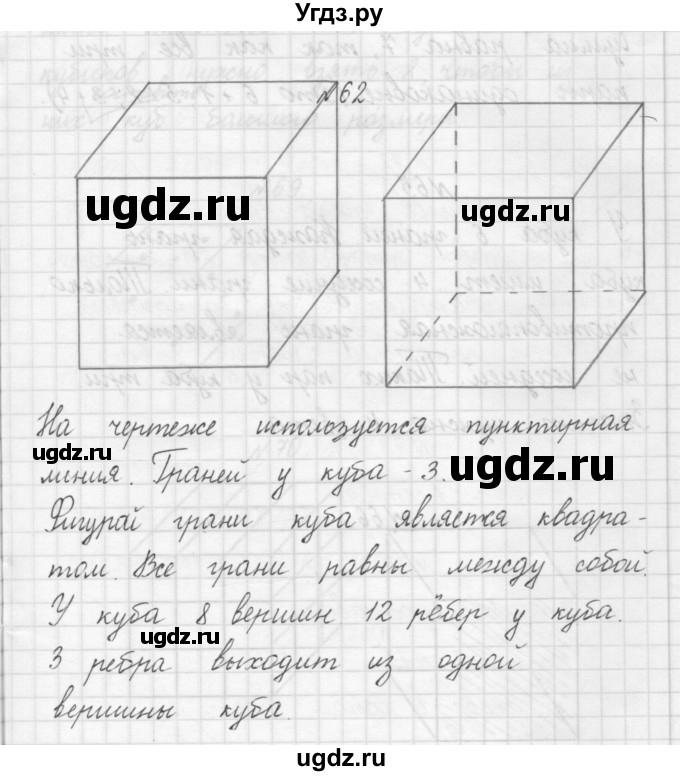 Угдз.ру
№62
ugdz.ru
ugdz.ru
На чертеже используется пунктирная
ugdz.ru
линия. Граней у куба - 3.
ugdz.ru
Фигурай грани куба является квадра-
том. Все грани равны между собой.
У куба 8 вершин 12 рёбер у куба.
ugdz.ru
3 ребра выходит из одной
вершины куба.
ugdz.ru